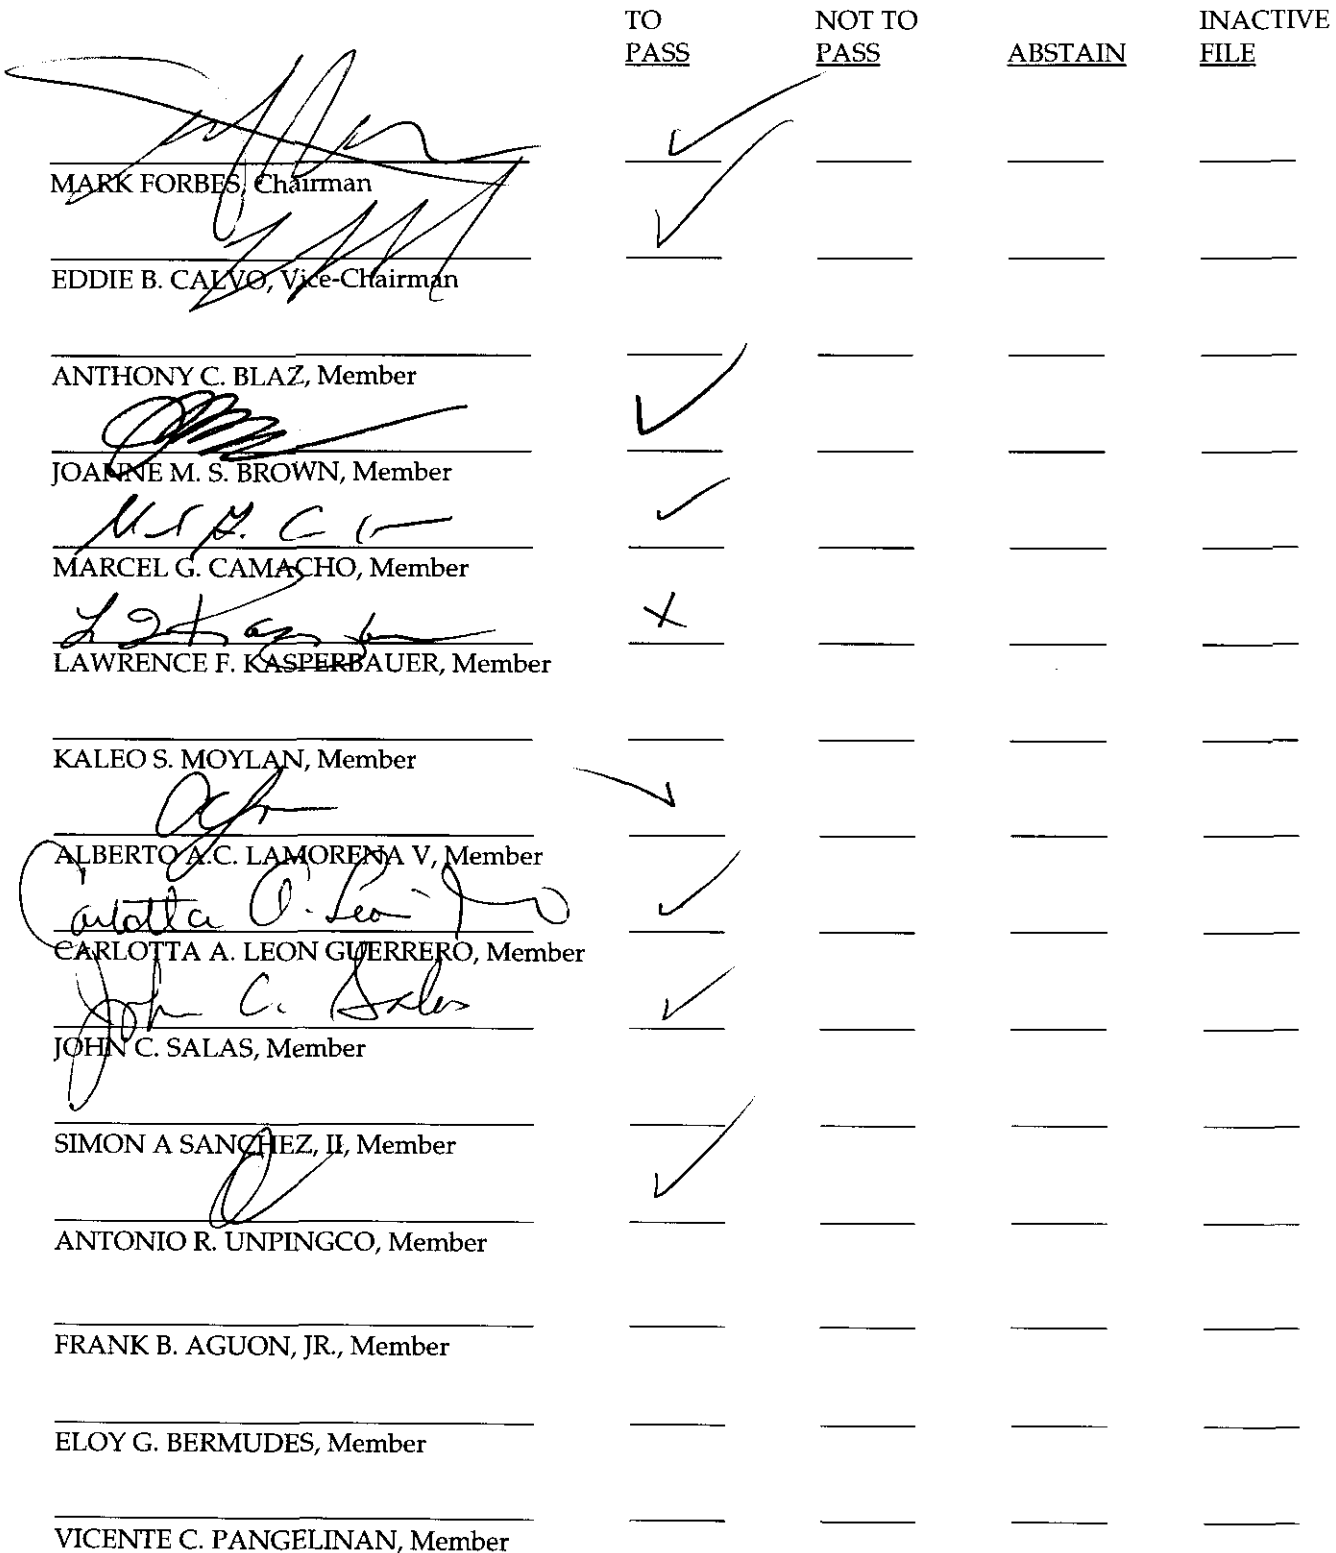 TO NOT TO INACTIVE
PASS PASS ABSTAIN FILE
MARK FORBES, Chairman
EDDIE B. CALVO, Vice-Chairman
ANTHONY C. BLAZ, Member
JOANNE M. S. BROWN, Member
MARCEL G. CAMACHO, Member
LAWRENCE F. KASPERBAUER, Member
KALEO S. MOYLAN, Member
ALBERTO A.C. LAMORENA V, Member
Carlotta A. Leon
CARLOTTA A. LEON GUERRERO, Member
John C. Salas
JOHN C. SALAS, Member
SIMON A SANCHEZ, II, Member
ANTONIO R. UNPINGCO, Member
FRANK B. AGUON, JR., Member
ELOY G. BERMUDES, Member
VICENTE C. PANGELINAN, Member